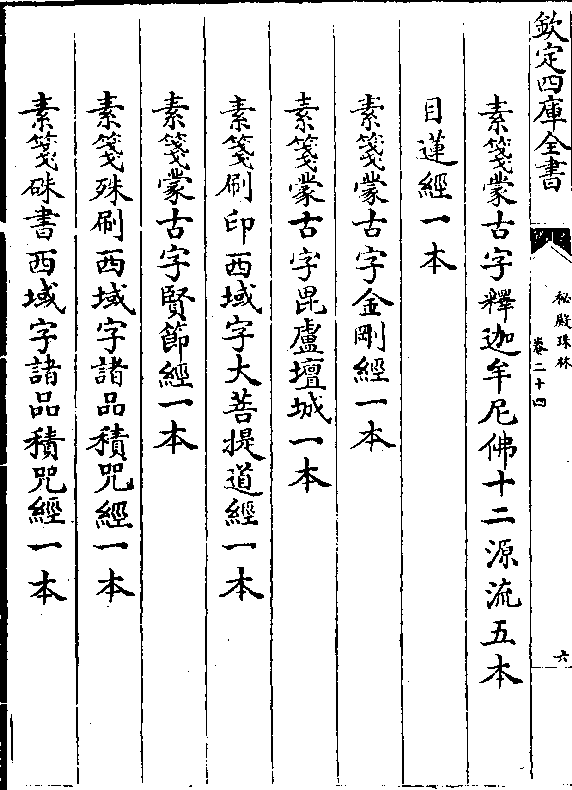 欽定四庫全書
秘殿珠林
卷二十四
六
素箋蒙古字釋迦牟尼佛十二源流五本
目蓮經一本
素箋蒙古字金剛經一本
素箋蒙古字毘盧壇城一本
素箋刷印西域字大菩提道經一本
素箋蒙古字賢節經一本
素箋殊刷西域字諸品積咒經一本
素箋硃書西域字諸品積咒經一本